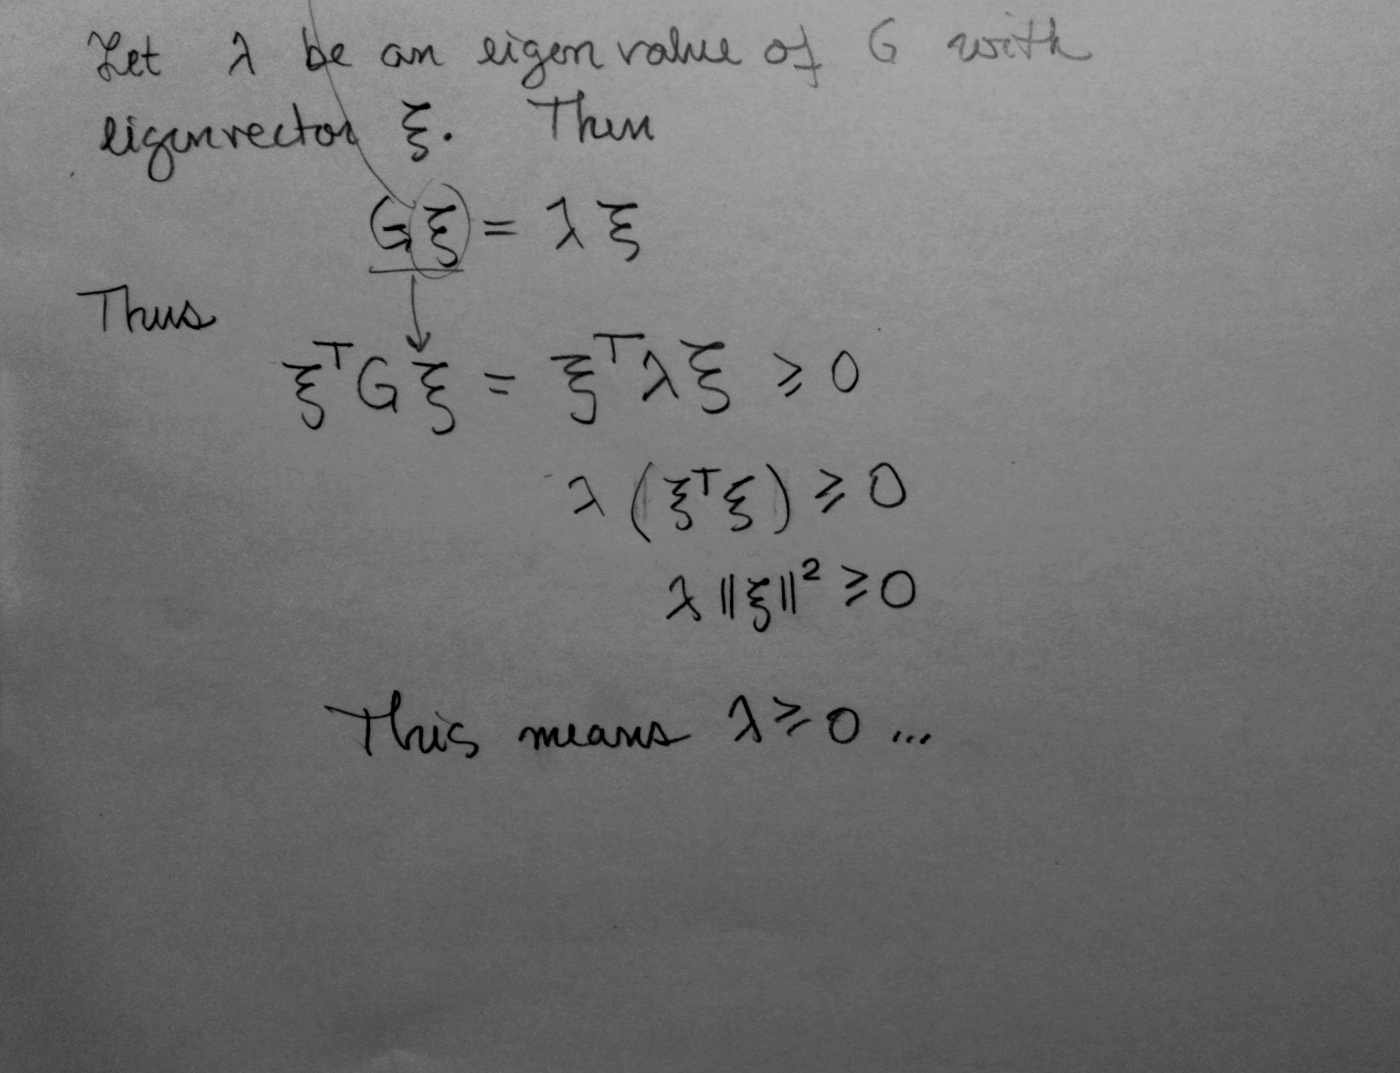 Let λ be an eigenvalue of G with
eigenvector ξ. Then
Gξ = λξ
Thus
ξᵀGξ = ξᵀλξ ⩾ 0
λ(ξᵀξ) ⩾ 0
λ‖ξ‖² ⩾ 0
This means λ ⩾ 0 ...